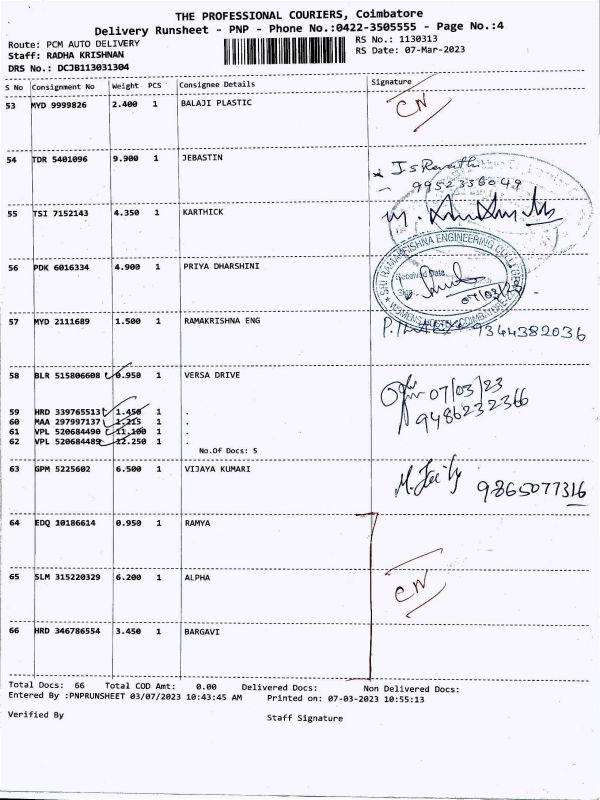 THE PROFESSIONAL COURIERS, Coimbatore
Delivery Runsheet - PNP - Phone No.:0422-3505555 - Page No.:4
Route: PCM AUTO DELIVERY
RS No.: 1130313
Staff: RADHA KRISHNAN
RS Date: 07-Mar-2023
DRS No.: DCJB113031304
S No Consignment No Weight PCS Consignee Details Signature
53 MYD 9999826 2.400 1 BALAJI PLASTIC
CN
54 TDR 5401096 9.900 1 JEBASTIN
9952336049
55 TSI 7152143 4.350 1 KARTHICK
56 PDK 6016334 4.900 1 PRIYA DHARSHINI
SRI RAMAKRISHNA ENGINEERING COLLEGE
Received Date
07/03/23
57 MYD 2111689 1.500 1 RAMAKRISHNA ENG
9344382036
58 BLR 515806608 0.950 1 VERSA DRIVE
07/03/23
9486232366
59 HRD 339765513 1.450 1 .
60 MAA 297997137 1.215 1 .
61 VPL 520684490 11.100 1 .
62 VPL 520684489 12.250 1 .
No.Of Docs: 5
63 GPM 5225602 6.500 1 VIJAYA KUMARI
9865077316
64 EDQ 10186614 0.950 1 RAMYA
65 SLM 315220329 6.200 1 ALPHA
CN
66 HRD 346786554 3.450 1 BARGAVI
Total Docs: 66 Total COD Amt: 0.00 Delivered Docs: Non Delivered Docs:
Entered By :PNPRUNSHEET 03/07/2023 10:43:45 AM Printed on: 07-03-2023 10:55:13
Verified By
Staff Signature